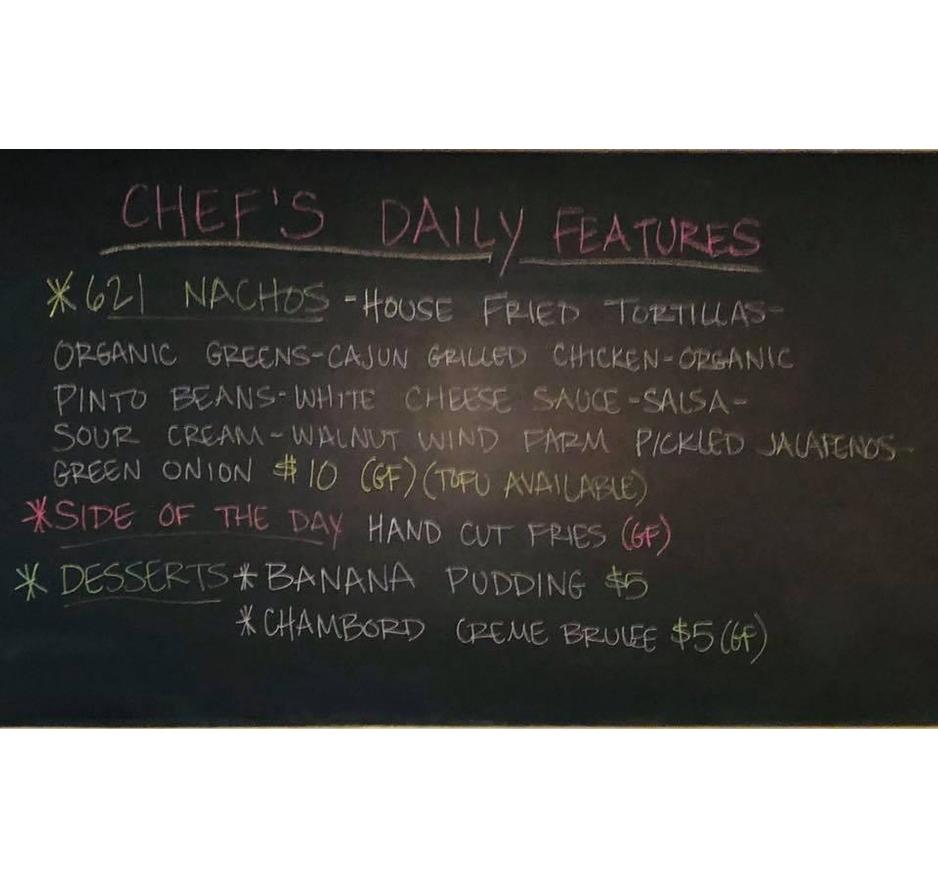 CHEF'S DAILY FEATURES
*621 NACHOS -HOUSE FRIED TORTILLAS-
ORGANIC GREENS-CAJUN GRILLED CHICKEN-ORGANIC
PINTO BEANS-WHITE CHEESE SAUCE-SALSA-
SOUR CREAM-WALNUT WIND FARM PICKLED JALAPENOS-
GREEN ONION $10 (GF) (TOFU AVAILABLE)
*SIDE OF THE DAY HAND CUT FRIES (GF)
* DESSERTS *BANANA PUDDING $5
*CHAMBORD CREME BRULEE $5 (GF)